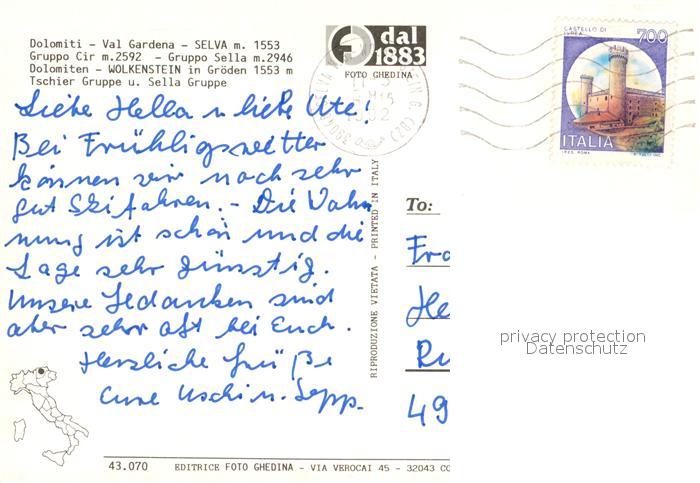 Dolomiti - Val Gardena - SELVA m. 1553
Gruppo Cir m.2592 - Gruppo Sella m.2946
Dolomiten - WOLKENSTEIN in Gröden 1553 m
Tschier Gruppe u. Sella Gruppe
dal
1883
FOTO GHEDINA
CASTELLO DI
IVREA
700
ITALIA
Liebe Hella u. liebe Ute!
Bei Frühligswetter
können wir noch sehr
gut Skifahren. - Die Woh
nung ist schön und die
Lage sehr günstig.
Unsere Gedanken sind
aber sehr oft bei Euch.
Herzliche Grüße
Eure Uschi u. Sepp.
RIPRODUZIONE VIETATA - PRINTED IN ITALY
To:
Fra
He
Ru
49
privacy protection
Datenschutz
43.070 EDITRICE FOTO GHEDINA - VIA VEROCAI 45 - 32043 CO